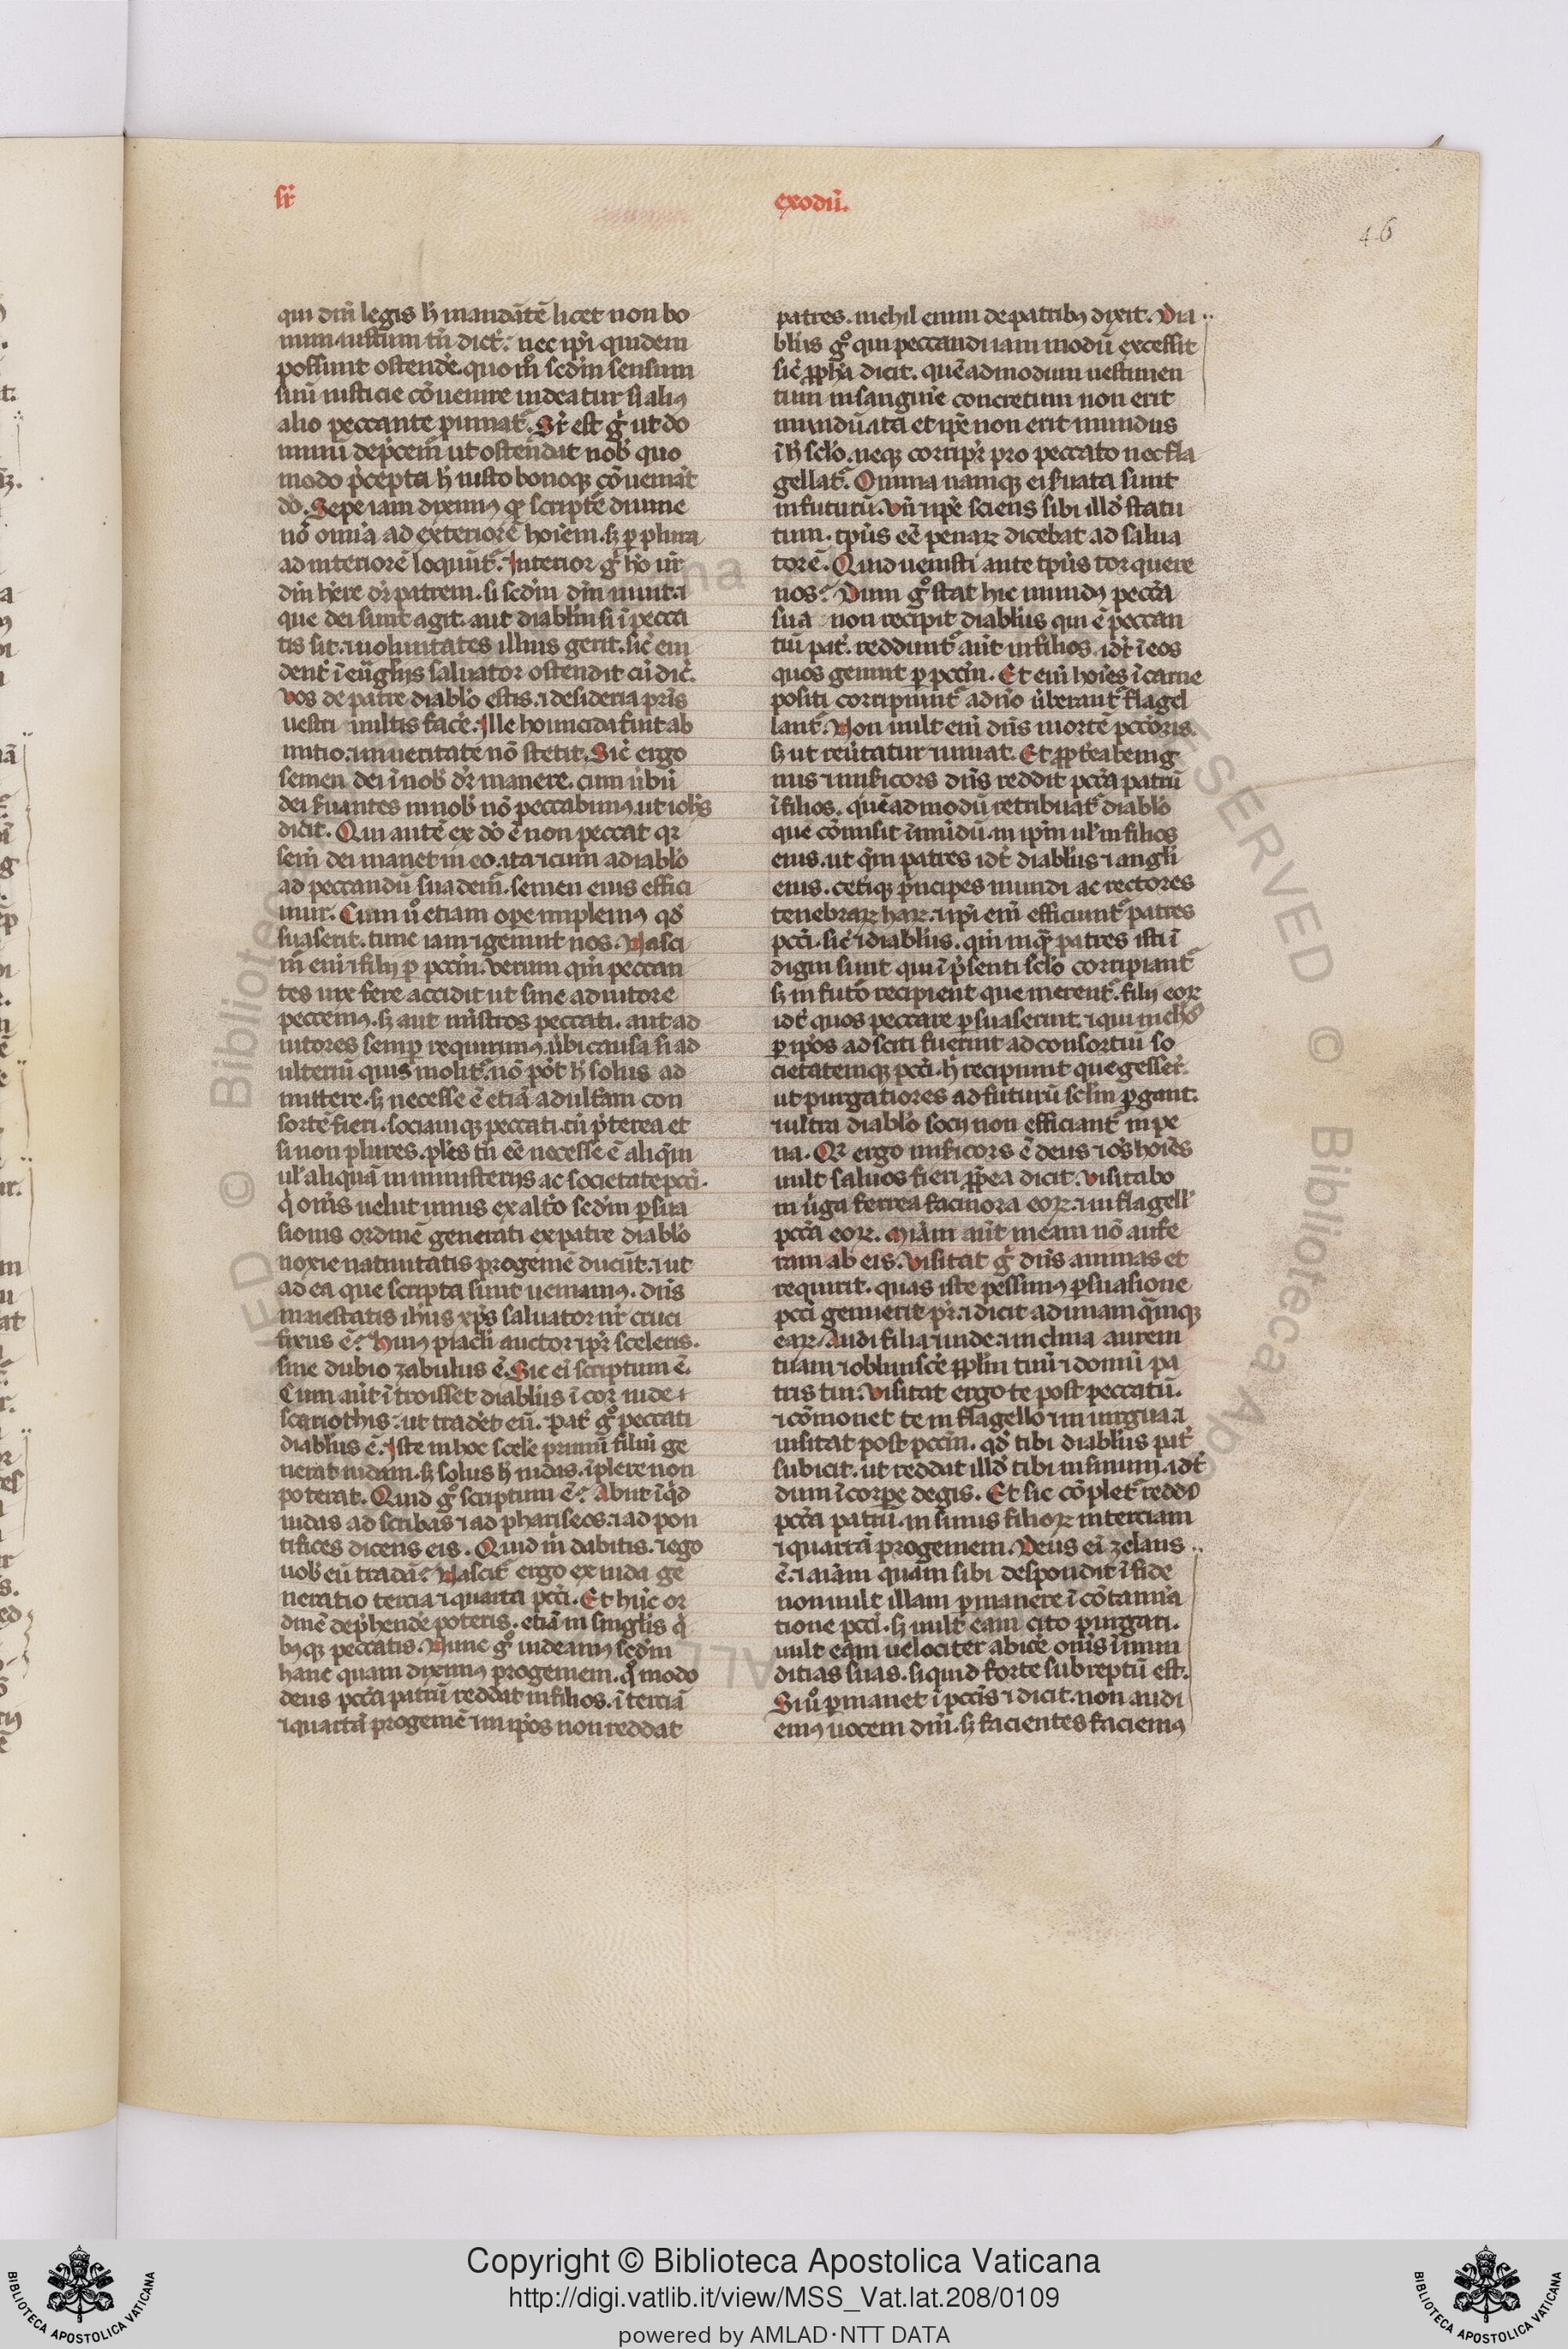 sr̄
exodū.
46
qui dn̄i legis h̄ mandātē licet non bo
num iustum tn̄ dict̄. nec ip̄i quidem
possunt ostendere. quom̊ scdm sensum
sūu iusticie cōuenire uideatur si aliꝰ
alio peccante puniat᷑. Sr̄ est gͥ ut do
minū dep̄cem᷑ ut ostendat nob̄ quo
modo p̄cepta h̄ iusto bonoqꝫ cōueniāt
dō. Sepe iam diximꝰ qꝫ scripte diuine
nō omīa ad exteriorē hoīem. sꝫ ꝑ plura
ad interiorē loquūt᷑. Interior gͥ hō ur̄
dīn hēre dr̄ patrem. si scdm dīn uiuit. ⁊
que dei sunt agit. aut diablm̄ si ī pecca
tis sit. ⁊ uoluntates illius gerit. sic̄ eui
dent̄ ī euḡlijs saluator ostendit cū dic̄.
Vos de patre diabl̄o estis. ⁊ desideria pr̄is
uestri uultis face᷑. Ille homicida fuit ab
initio. ⁊ in ueritate nō stetit. Sic̄ ergo
semen dei ī nob̄ dr̄ manere. cum ūbū
dei s̄uantes in nob̄ nō peccabimꝰ. ut ioh̄s
dicit. Qui autē ex dō ē non peccat qꝛ
sem̄ dei manet in eo. ita ⁊ cum a diabl̄o
ad peccandū suadem᷑. semen eius effici
mur. Cum ůo etiam opere implemꝰ qd̄
suaserit. tunc iam ⁊ genuit nos. Nasci
m᷑ eni ⁊ filij ꝑ pcc̄m. verum qm̄ peccan
tes uix fere accidit ut sine adiutore
peccemꝰ. sꝫ aut mīstros peccati. aut ad
iutores semꝑ requirimꝰ. ūbi causa si ad
ulteriū quis molit᷑. nō pōt h̄ solus ad
mittere. sꝫ necesse ē etiā adult̄am con
sortē fieri. sociamqꝫ peccati. cū p̄terea et
si non plures. ples tn̄ eē necesse ē aliqͥm
ul̄ aliquā in ministerijs ac societate pcc̄i.
qͥ om̄s uelut unus ex alt̄o scdm ꝑsua
sionis ordinē generati ex patre diabl̄o
noxie natiuitatis progeniē ducūt. ⁊ ut
ad ea que scripta sunt ueniamꝰ. dn̄s
maiestatis ih̄us xp̄s saluator nr̄ cruci
fixus ē? Huiꝰ piacli auctor ⁊ pr̄ sceleris.
sine dubio zabulus ē. Sic eī scriptum ē.
Cum aūt ītroisset diabl̄us ī cor iude
scariothis. ut trad̄et eū. Pat̄ gͦ peccati
diabl̄us ē. Iste in hoc scele᷑ primū filiū ge
nerat iudam. sꝫ solus h̄ iudas. īplere non
poterat. Quid gͦ scriptum ē? Abiit īqͥd
iudas ad scribas ⁊ ad phariseos. ⁊ ad pon
tifices dicens eis. Quid m̄ dabitis. ⁊ ego
uob̄ eū tradā? Nascit᷑ ergo ex iuda ge
neratio tercia ⁊ quarta pcc̄i. Et hūc or
dinē dep̄hendē poteris. etiā in singl̄is qͥ
bꝰqꝫ peccatis. Nunc gͦ uideamꝰ scdm
hanc quam diximꝰ progeniem. qͦmodo
deus pcc̄a patrū reddat in filios. ī terciā
⁊ quartā progeniē ⁊ in ip̄os non reddat
patres. nichil enim de patribꝰ dixit. Dia
bl̄us gͦ qui peccandi iam modū excessit
sic̄ ꝓph̄a dicit. quēadmodum uestimen
tum in sanguīe concretum non erit
mundū. ita et ip̄e non erit mundus
ī h̄ sclō. neqꝫ corripit᷑ pro peccato nec fla
gellat᷑. Omnia namqꝫ ei s̄uata sunt
in futurū. Vn̄ ⁊ ip̄e sciens sibi illd̄ statu
tum. tp̄us eē penaꝝ dicebat ad salua
torē. Quid uenisti ante tp̄us torquere
nos? Dum gͦ stat hic mundꝰ pcc̄a
sua non recipit diabl̄us qui ē peccan
tiū pat̄. reddunt᷑ aūt in filios. idē ī eos
quos genuit ꝑ pcc̄m. Et enī hoīes ī carne
positi corripiunt᷑ a dn̄o ūberant᷑ flagel
lant᷑. Non uult eni dn̄s mortē pcc̄oris.
sꝫ ut reūtatur ⁊ uiuat. Et ꝓpt̄ea benig
nus ⁊ mis̄icors dn̄s reddit pcc̄a patrū
ī filios. quēadmodū retribuat᷑ diabl̄o
que cōmisit ī mūdū. in ip̄m ul̄ in filios
eius. ut qm̄ patres idē diabl̄us ⁊ angl̄i
eius. cet̄iqꝫ pͥncipes mundi ac rectores
tenebraꝝ haꝝ. ⁊ ip̄i enī efficiunt᷑ patres
pcc̄i. sic̄ ⁊ diabl̄us. qm̄ inqͣ patres isti ī
digni sunt qui ī p̄senti sclō corripiant᷑
sꝫ in futō recipient que merent᷑. filij eoꝝ
idē quos peccare ꝑsuaserint. ⁊ qui
ꝑ ip̄os adsciti fuerint ad consortiū so
cietatemqꝫ pcc̄i. h̄ recipiunt que gesser̄.
ut purgatiores ad futurū sclm̄ ꝑgant.
⁊ ultra diabl̄o socij non efficiant᷑ in pe
na. Qꝛ ergo mis̄icors ē deus ⁊ oēs hoīes
uult saluos fieri ꝓpt̄ea dicit. visitabo
in ūga ferrea facinora eoꝝ. ⁊ in flagell̄
pcc̄a eoꝝ. Mīam aūt meam nō aufe
ram ab eis. Visitat gͥ dn̄s animas et
requirit. quas iste pessimꝰ ꝑsuasione
pcc̄i genuerit pr̄. ⁊ dicit ad unamqͣmqꝫ
eaꝝ. Audi filia ⁊ uide. ⁊ inclina aurem
tuam ⁊ obliuisce᷑ ꝓplm̄ tuū ⁊ domū pa
tris tui. Visitat ergo te post peccatū.
⁊ cōmonet te in flagello ⁊ in uirgua. ⁊
uisitat post pcc̄m. qd̄ tibi diabl̄us pat̄
subicit. ut reddat illd̄ tibi in sinum. idē
dum ī corpe degis. Et sic cōplet᷑ reddi
pcc̄a patrū. in sinus filioꝝ in terciam
⁊ quartā progeniem. Deus eī zelans
ē. ⁊ aīam quam sibi despondit ī fide
non uult illam ꝑmanere ī cōtamīa
tione pcc̄i. sꝫ uult eam cito purgari.
uult eam uelociter abicē om̄s īmun
ditias suas. si quid forte subreptū est.
Si ůo ꝑmanet ī pcc̄is ⁊ dicit. non audi
emꝰ uocem dn̄i. sꝫ facientes faciemꝰ
Copyright © Biblioteca Apostolica Vaticana
http://digi.vatlib.it/view/MSS_Vat.lat.208/0109
powered by AMLAD·NTT DATA
BIBLIOTECA APOSTOLICA VATICANA
BIBLIOTECA APOSTOLICA VATICANA